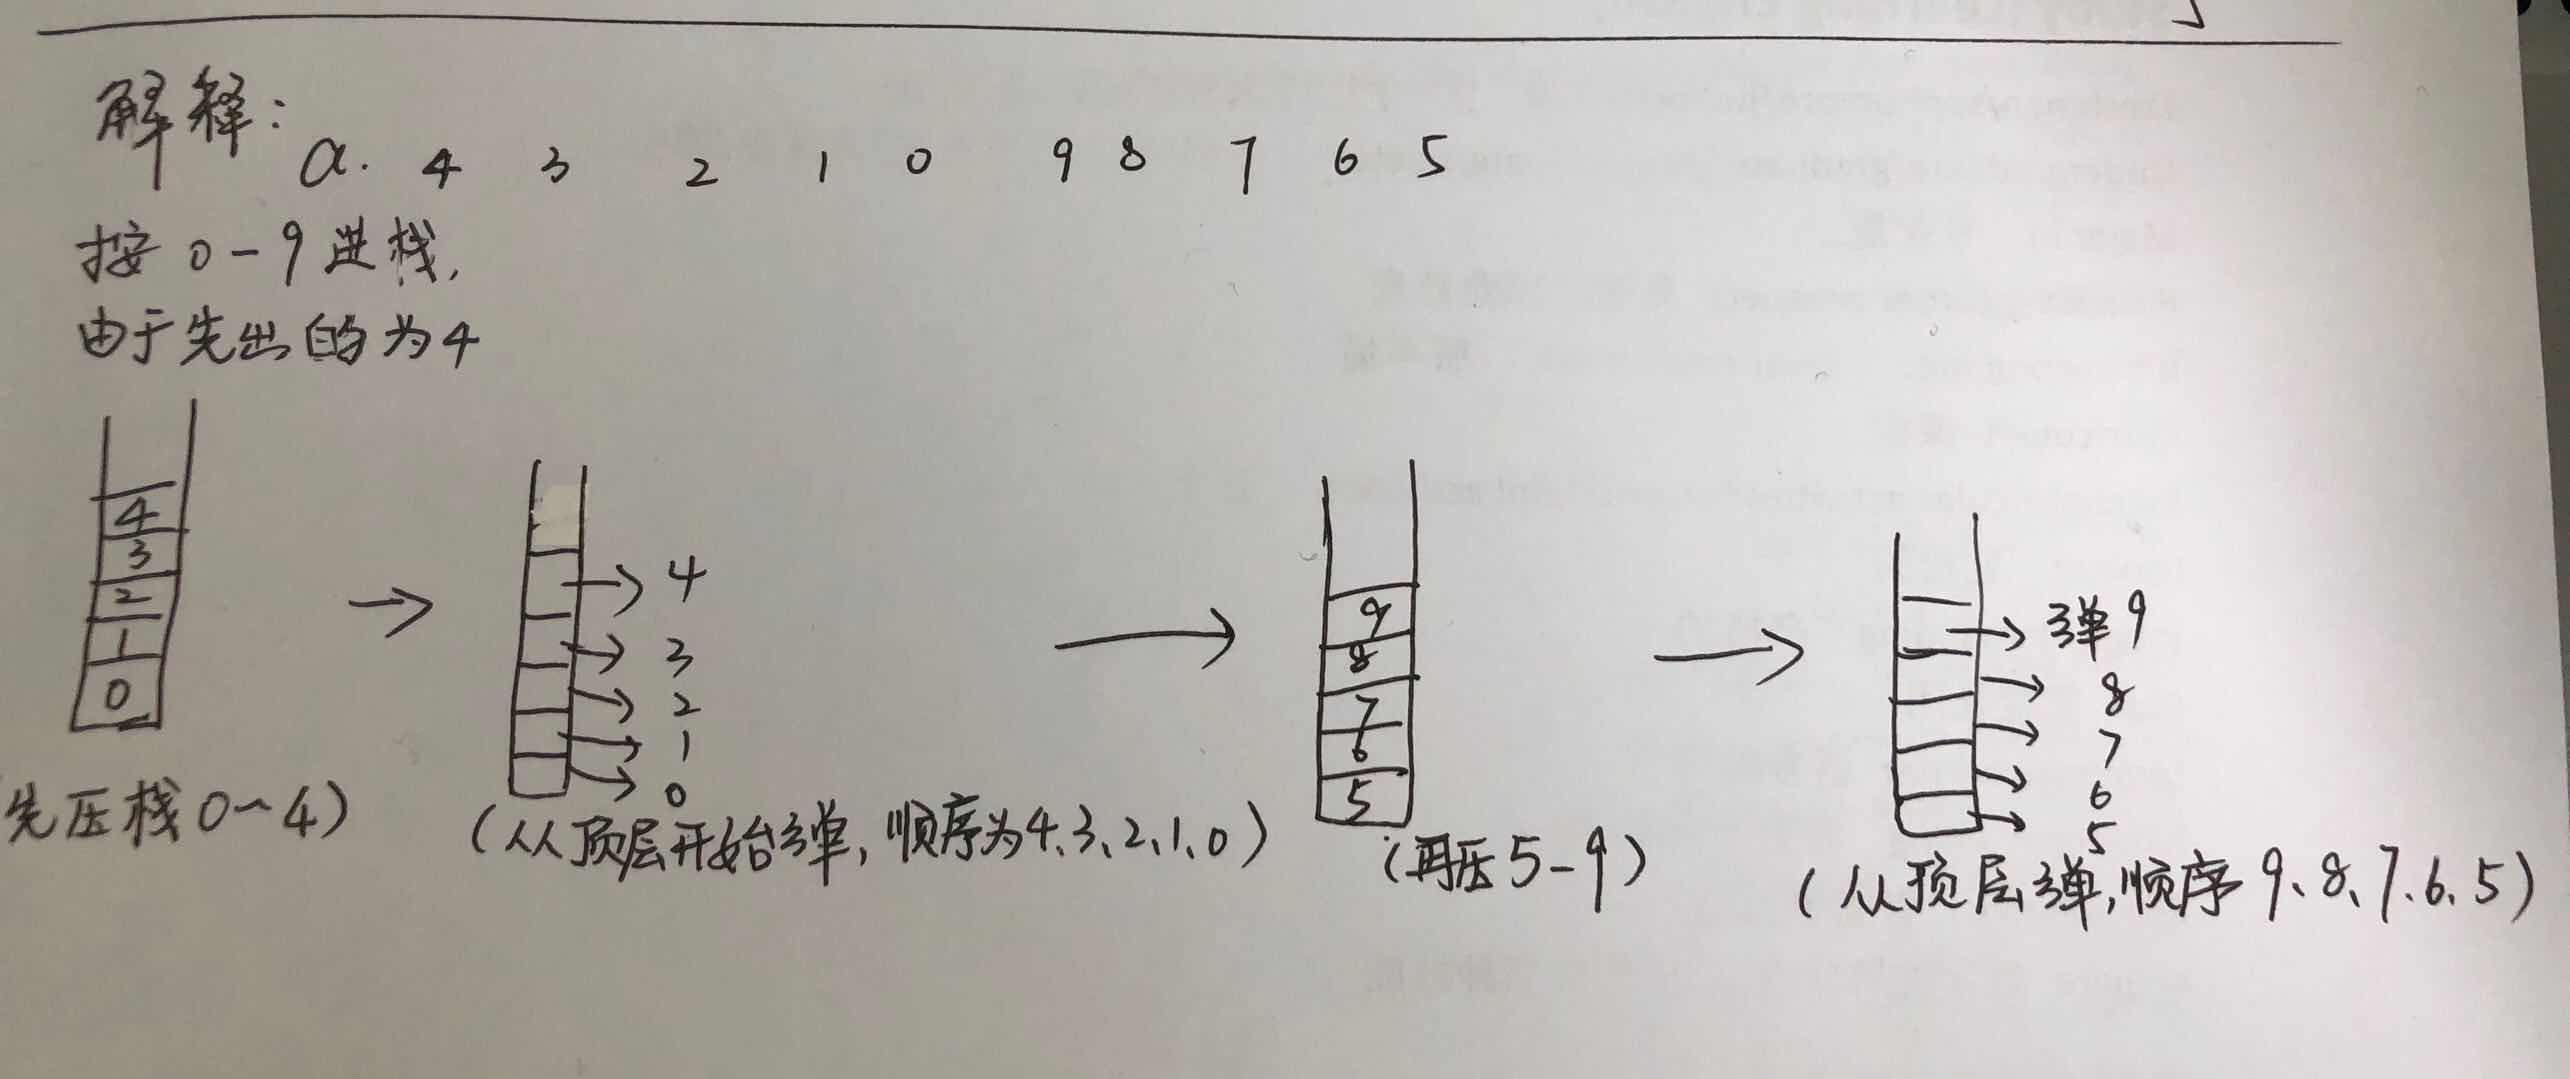 解释：
a. 4 3 2 1 0 9 8 7 6 5
按 0-9 进栈,
由于先出的为4
4
3
2
1
0
先压栈0~4)
4
3
2
1
0
(从顶层开始弹,顺序为4、3、2、1、0)
9
8
7
6
5
(再压5-9)
弹9
8
7
6
5
(从顶层弹,顺序9、8、7.6、5)